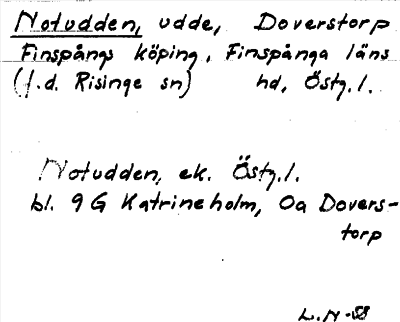 Notudden, udde, Doverstorp
Finspångs köping, Finspånga läns
(f.d. Risinge sn) hd, Östg.l.
Notudden, ek. Östg.l.
bl. 9 G Katrineholm, Oa Dovers-
torp
L.N-58